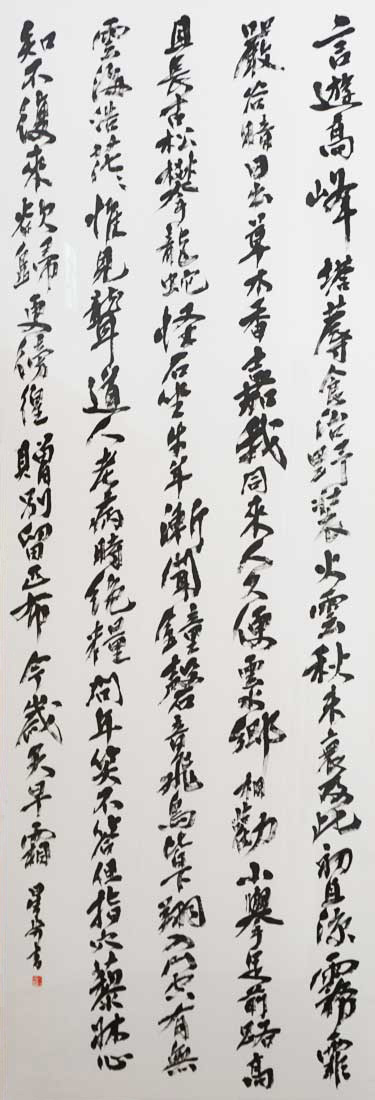 言遊高峰塔蓐食治野裝火雲秋未衰及此初旦涼霧霏
嚴谷暗日出草木香嘉我同來人久便雲水鄉相勸小舉足前路高
且長古松攀龍蛇怪石坐牛羊漸聞鐘磬音飛鳥皆下翔入門空有無
雲海浩茫々惟見聾道人老病時絕糧問年笑不答但指穴藜牀心
知不復來欲歸更徬徨贈別留匹布今歲天早霜 書